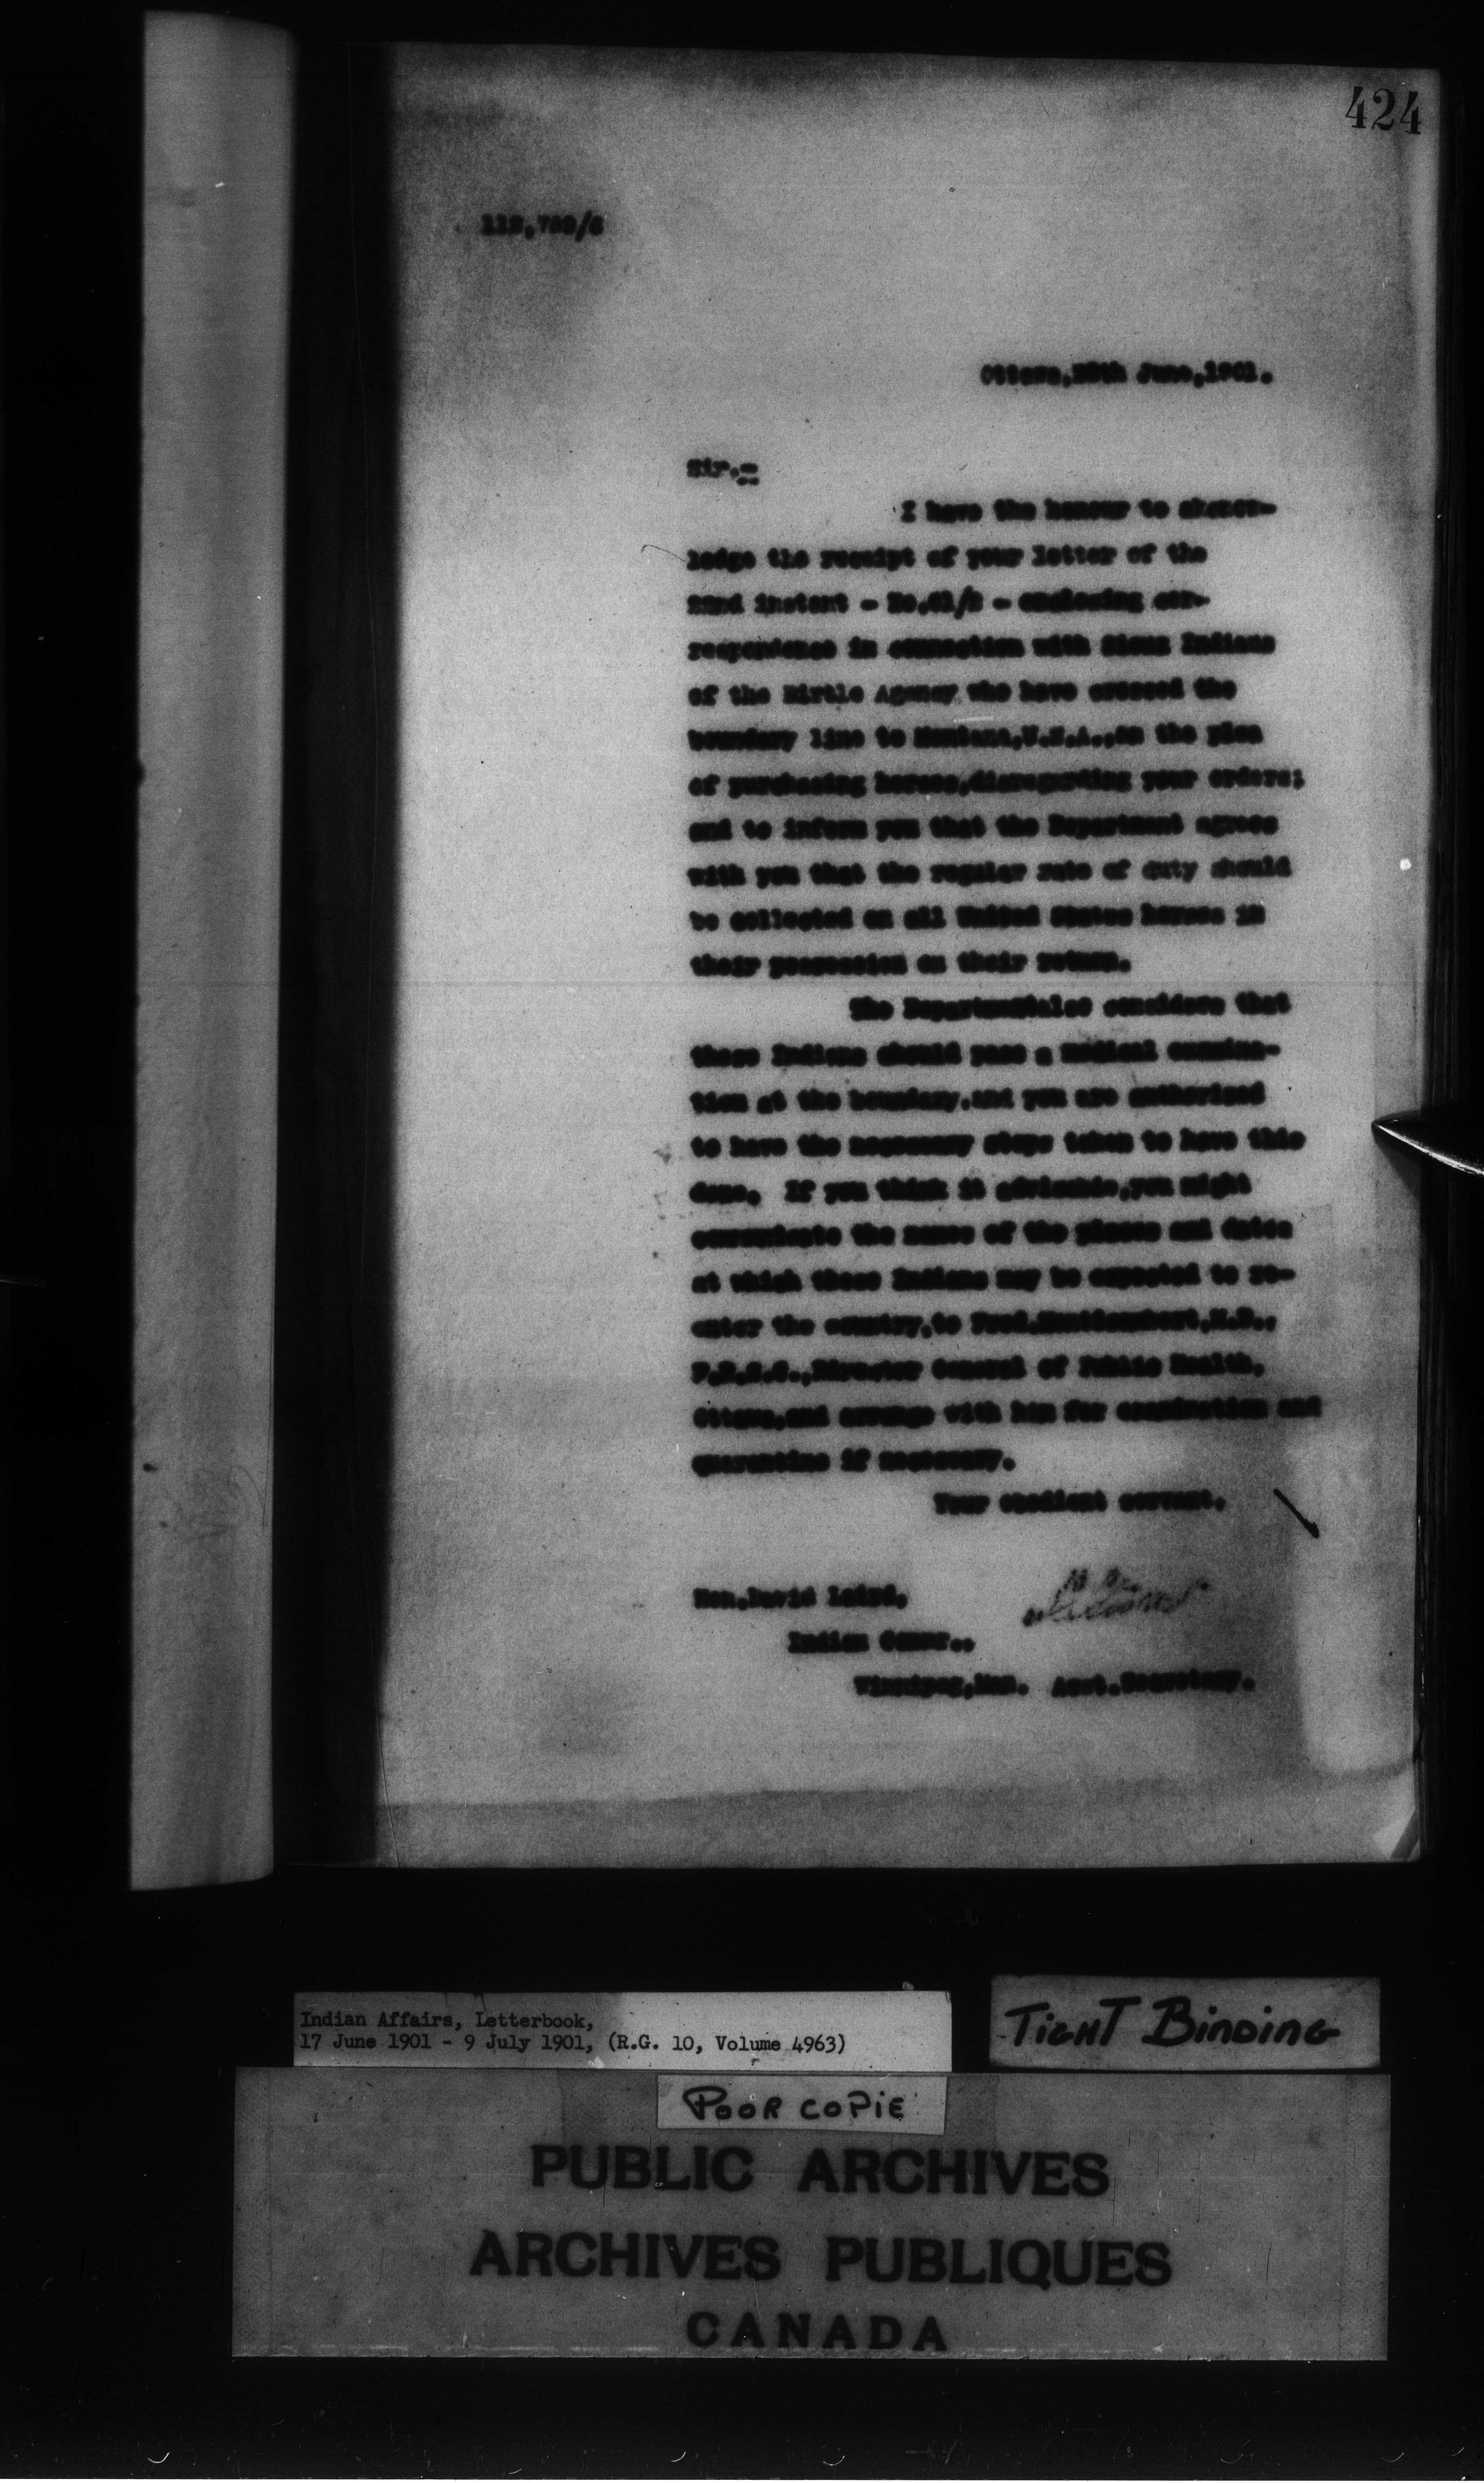 424
Ottawa, 28th June, 1901.
Sir,-
I have the honour to aknow-
ledge the receipt of your letter of the
22nd instant - No. - enclosing cor-
respondence in connection with Sioux Indians
of the Birtle Agency who have crossed the
boundary line to Montana, U.S.A., on the plea
of purchasing horses, disregarding your orders;
and to inform you that the Department agrees
with you that the regular rate of duty should
be collected on all United States horses in
their possession on their return.
The Department also considers that
these Indians should pass a medical examina-
tion at the boundary, and you are authorized
to have the necessary steps taken to have this
done. If you think it advisable, you might
communicate the names of the places and dates
at which these Indians may be expected to re-
enter the country, to Fred. Montizambert, M.D.,
F.R.C.S., Director General of Public Health,
Ottawa, and arrange with him for examination and
quarantine if necessary.
Your obedient servant,
Hon. David Laird,
Indian Commr.,
Winnipeg, Man. Asst. Secretary.
Indian Affairs, Letterbook,
17 June 1901 - 9 July 1901, (R.G. 10, Volume 4963)
TIGHT BINDING
POOR COPIE
PUBLIC ARCHIVES
ARCHIVES PUBLIQUES
CANADA